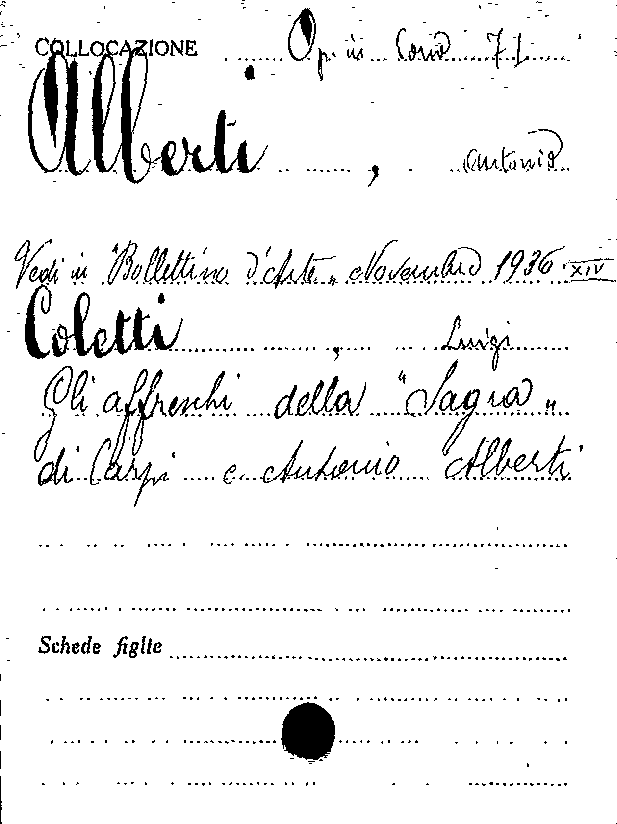 COLLOCAZIONE Op. in Corso 71
Alberti, Antonio
Vedi in "Bollettino d'Arte" Novembre 1936 XIV
Coletti, Luigi
Gli affreschi della "Sagra"
di Carpi e Antonio Alberti
Schede figlie